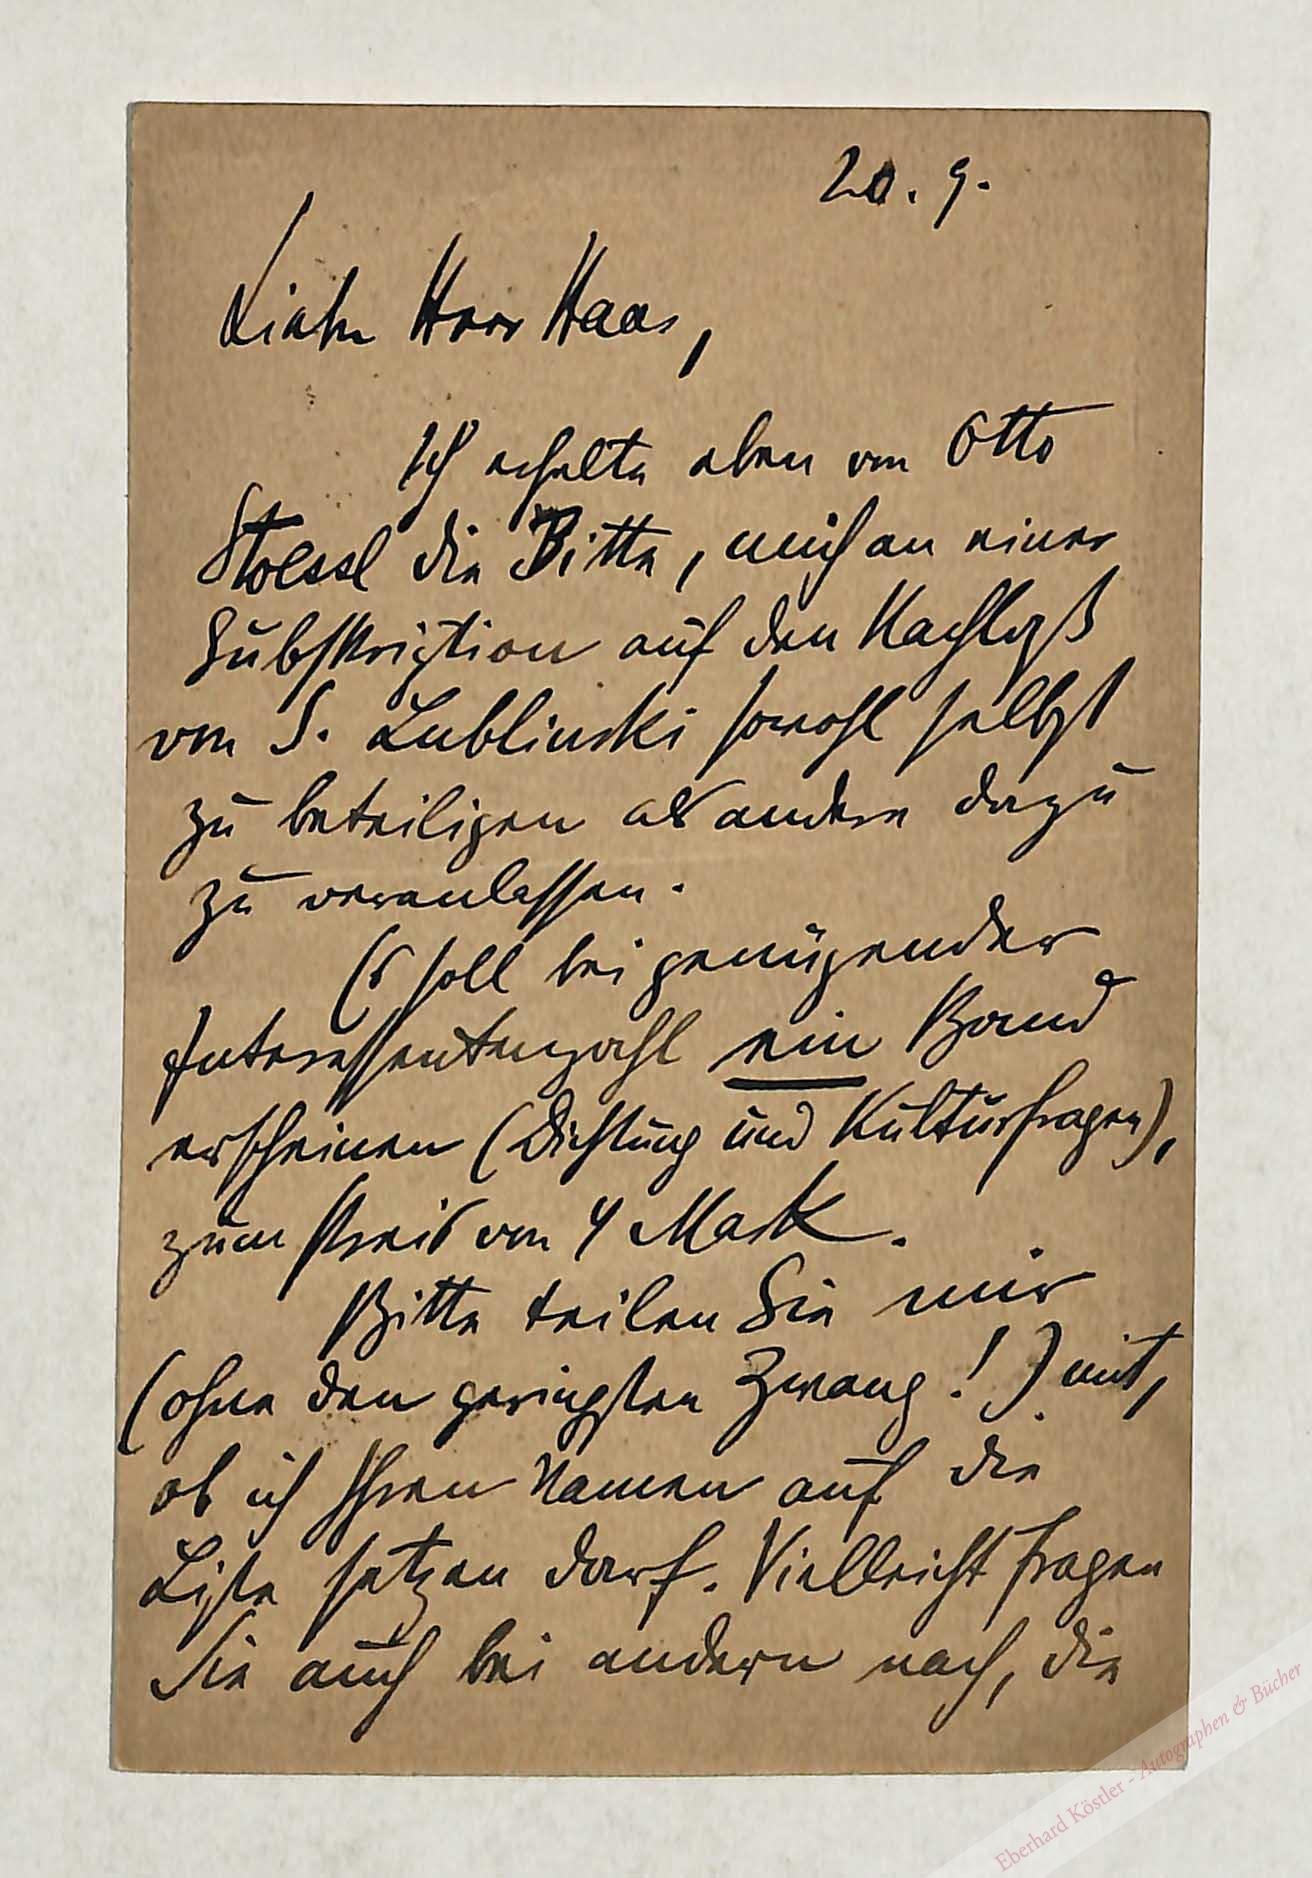 20. 9.
Lieber Herr Haas,
Ich erhalte eben von Otto
Stoessl die Bitte, mich an einer
Subskription auf den Nachlaß
von S. Lublinski sowohl selbst
zu beteiligen als andere dazu
zu veranlassen.
Es soll bei genügender
Interessentenzahl ein Band
erscheinen (Dichtung und Kulturfragen),
zum Preis von 4 Mark.
Bitte teilen Sie mir
(ohne den geringsten Zwang!) mit,
ob ich Ihren Namen auf die
Liste setzen darf. Vielleicht fragen
Sie auch bei andern nach, die
Eberhard Köstler - Autographen & Bücher